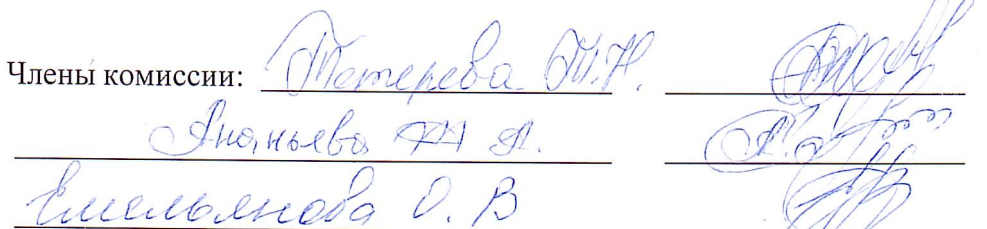 Члены комиссии: Тетерева Т.Н.
Ананьева А.
Емельянова О. В